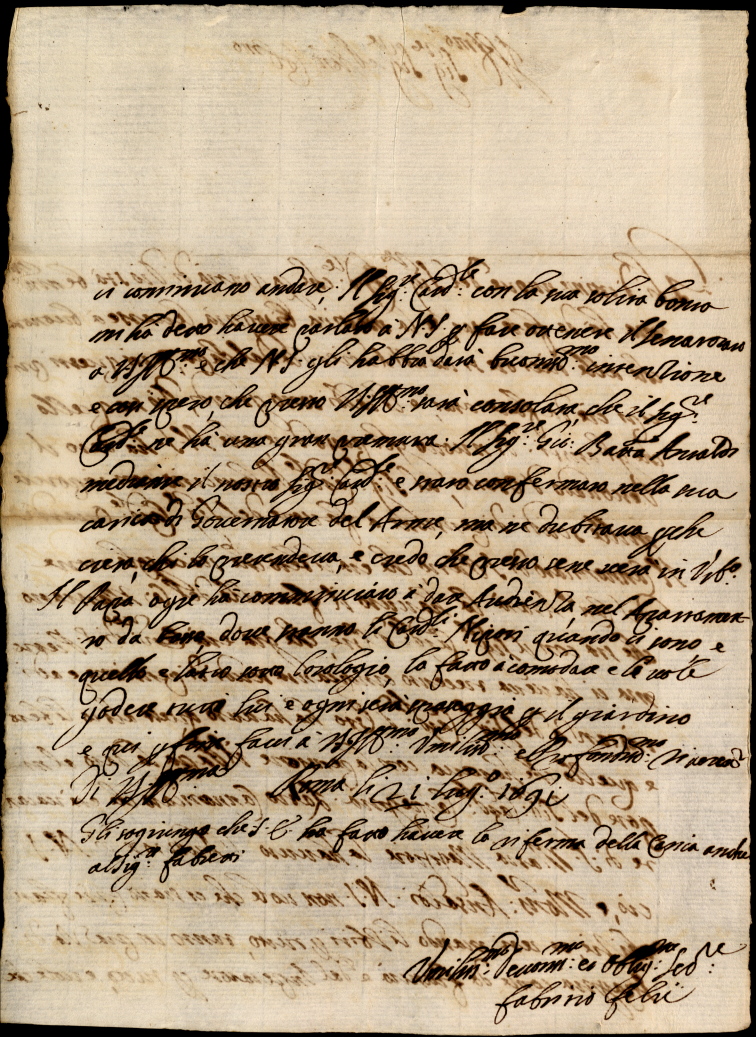 ci cominciano andare, Il Sig.re Card.le con la sua solita bontà
mi ha detto havere parlato à N.S. p fare ottenere il Senatorato
a V.S. Ill.ma e che N.S. gli habbia data buoniss.mo intentione
e con spero, che presto V.S. Ill.ma sarà consolata che il Sig.re
Card.le ne ha una gran premura. Il Sig.re Gio: Batta
mediante il nostro Sig.re Card.le e stato confermato nella sua
carica di Governatore del Arme, ma ne dubitava pche
chi lo pretendeva, e credo che presto se ne verà in
Il Papa oggi ha cominciato a dar Audienza nel Apartamen-
to da dove stanno li Card.li Nipoti quando ci sono, e
quello è sotto lorologio, lo fatto acomodare e le vole
godere tutti lui e ogni sera passeggia p il giardino
e qui p fine facci à V.S. Ill.ma Umiliss.mo e Profondiss.mo riverenza
Di V.S. Ill.ma Roma li 21 lug.o 1691
Gli sogiungo che S.E. ha fatto havere la riferma della Caria anche
al Sig.re Fabreti
Umiliss.mo Devotiss.mo et Oblig.mo Ser.re
Fabritio Felii